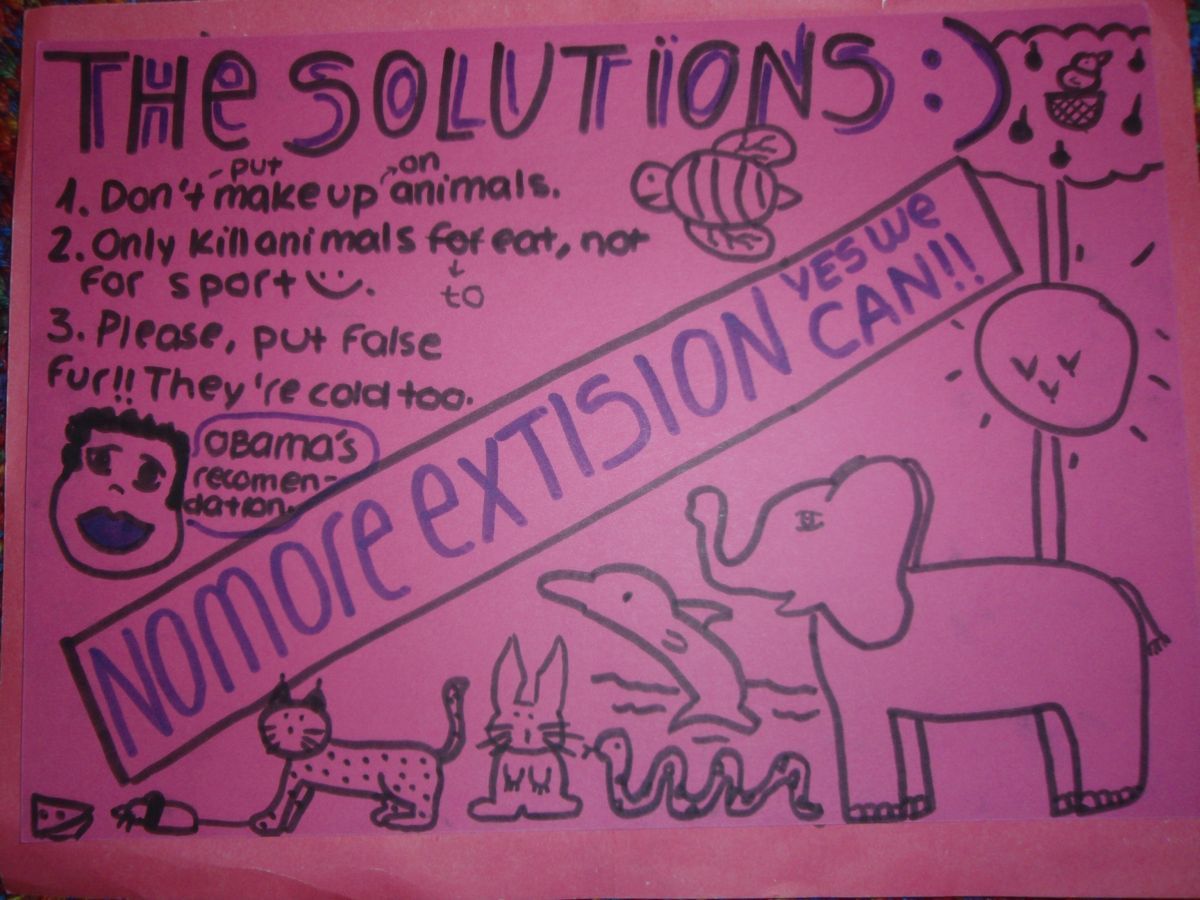 THe SOLUTIONS :)
put on
1. Don't make up animals.
2. Only kill animals for eat, not
for sport
to
3. Please, put false
fur!! They're cold too.
OBama's
recomen-
dation.
NO more exTISION YES We
CAN!!